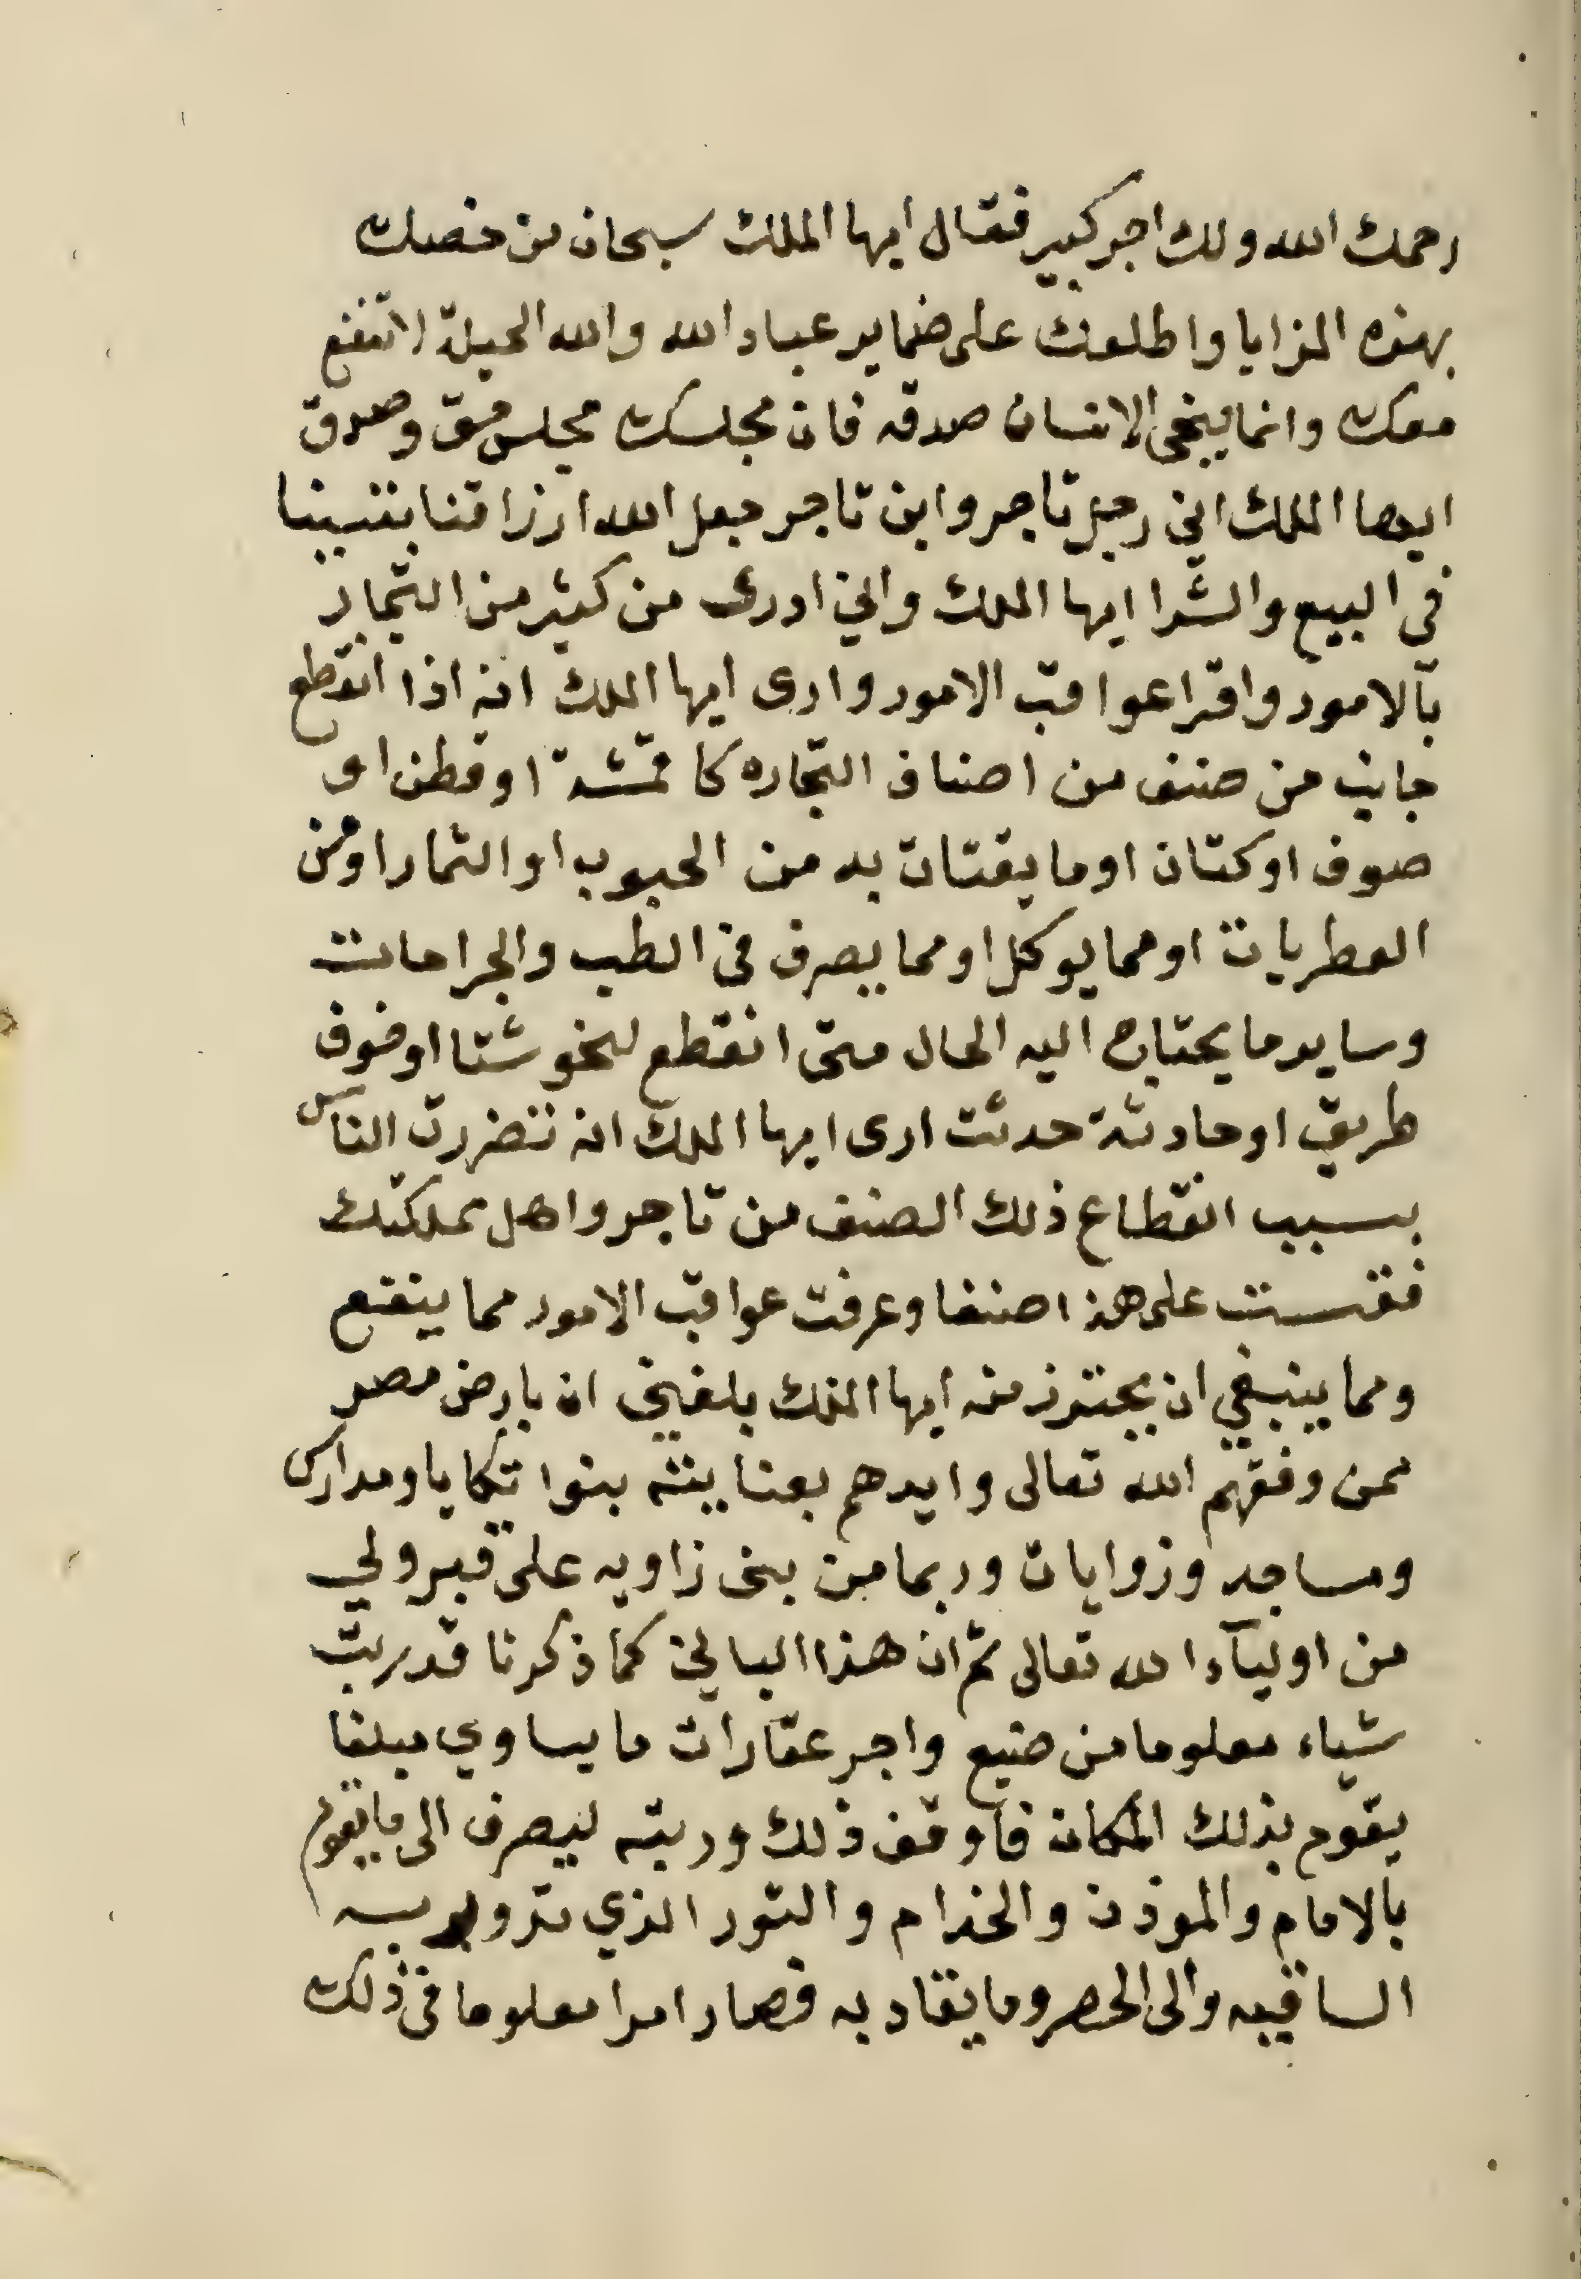 رحمك الله ولك اجر كبير فقال ايها الملك سبحان من خصك
بهذه المزايا واطلعك على ضماير عباد الله والله الحيلة لا تنفع
معك وانما ينجى الانسان صدقه فان مجلسك مجلس حق وصدق
ايها الملك اني رجل تاجر وابن تاجر جعل الله ارزاقنا بتسببنا
في البيع والشرا ايها الملك واني ادرى من كثير من التجار
بالامور واقرا عواقب الامور وارى ايها الملك انه اذا انقطع
جانب من صنف من اصناف التجاره كاقمشة او قطن او
صوف او كتان او ما يقتات به من الحبوب او الثمار او من
العطريات او مما يوكل او مما يصرف في الطب والجراحات
وساير ما يحتاج اليه الحال متى انقطع لنحو شتا او خوف
طريق او حادثة حدثت ارى ايها الملك انه تتضررت الناس
بسبب انقطاع ذلك الصنف من تاجر واهل مملكتك
فقست على هذا صنفا وعرفت عواقب الامور مما ينفع
ومما ينبغي ان يحترز منه ايها الملك بلغني ان بارض مصر
ممن وفقهم الله تعالى وايدهم بعنايته بنوا تكايا ومدارس
ومساجد وزوايات وربما من بنى زاويه على قبر ولي
من اوليآء الله تعالى ثم ان هذا الباني كما ذكرنا قد رتب
شياء معلوما من ضيع واجر عقارات ما يساوي مبلغا
يقوم بذلك المكان فاوقف ذلك ورتبه ليصرف الى ما يقوم
بالامام والموذن والخدام والثور الذي تدور به
الساقيه والى الحصر وما يقاد به فصار امرا معلوما في ذلك